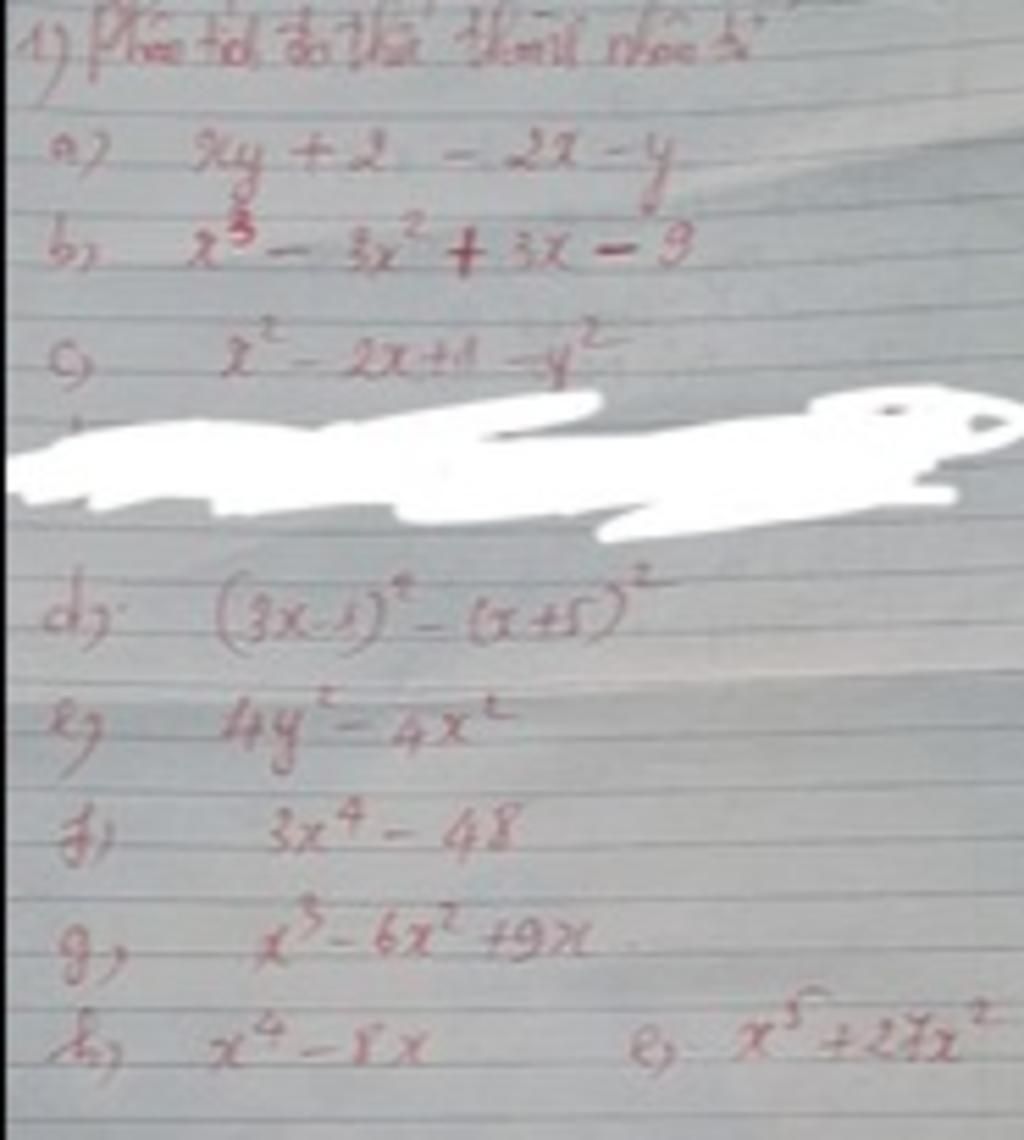 1) Phân tích đa thức thành nhân tử
a) xy + 2 - 2x - y
b) x³ - 3x² + 3x - 9
c) x² - 2x + 1 - y²
d) (3x - 1)² - (x + 5)²
e) 4y² - 4x²
f) 3x⁴ - 48
g) x³ - 6x² + 9x
h) x⁴ - 8x e) x⁵ + 27x²